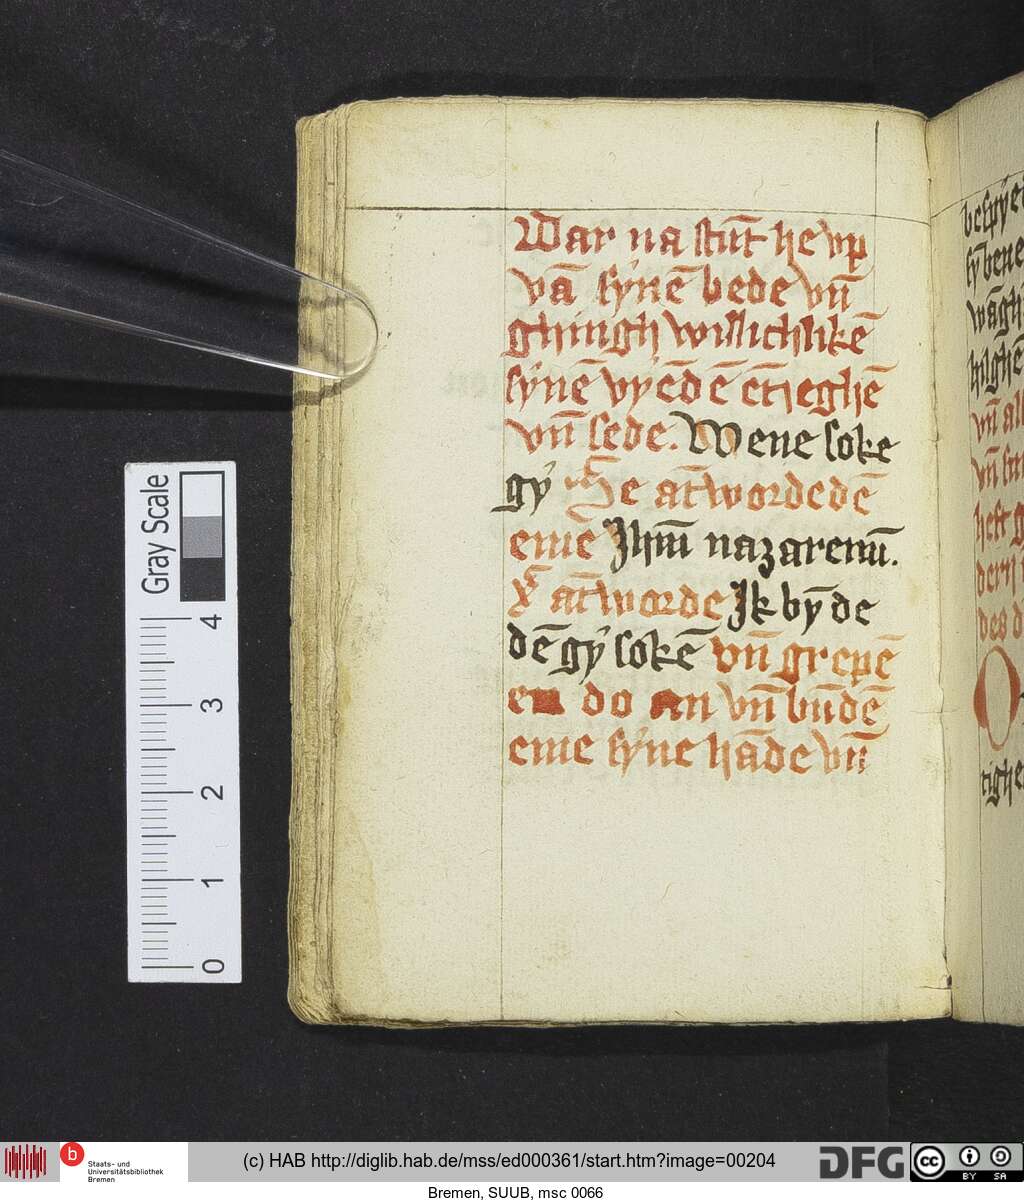 War na stūt he vp
vā sÿnē bede vn̄
ghingh willichlikē
sÿnē vyēdē ētieghē
vn̄ sede. Wene soke
gÿ He āt̄wordedē
eme Jhm̄ nazarenū.
āt̄worde Jk by̅ de
dē gÿ sokē vn̄ grepē
en do an vn̄ būdē
eme sÿne hāde vn̄
bespÿe
sÿ bene
wāgh
hilghē
vn̄ al
vn̄
heft g
dern
des d
O
tighe
Gray Scale
4
3
2
1
0
b
Staats- und
Universitätsbibliothek
Bremen
(c) HAB http://diglib.hab.de/mss/ed000361/start.htm?image=00204
DFG
cc
BY SA
Bremen, SUUB, msc 0066